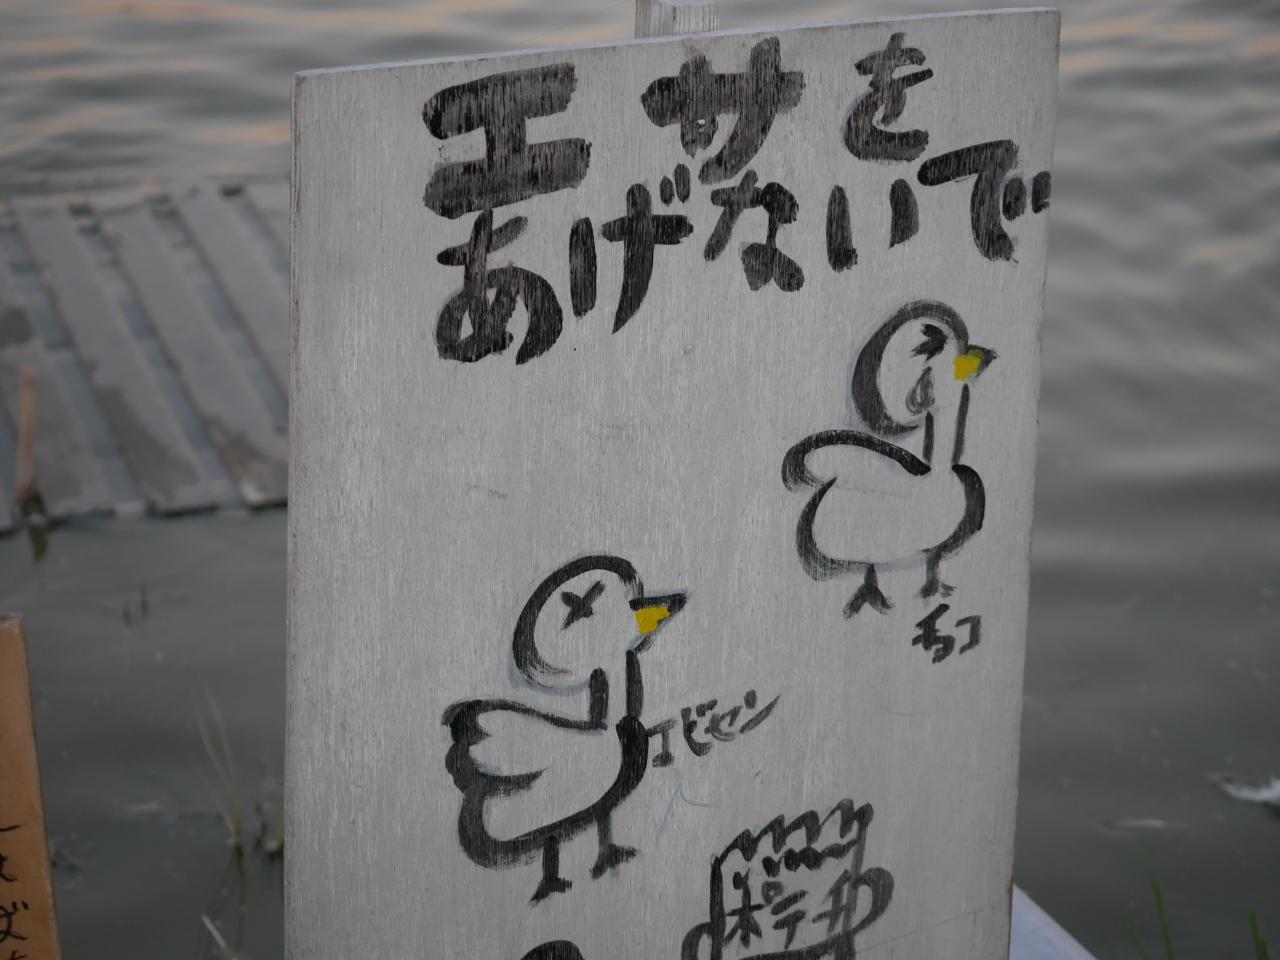 エサを
あげないで
チョコ
エビセン
ポテチ